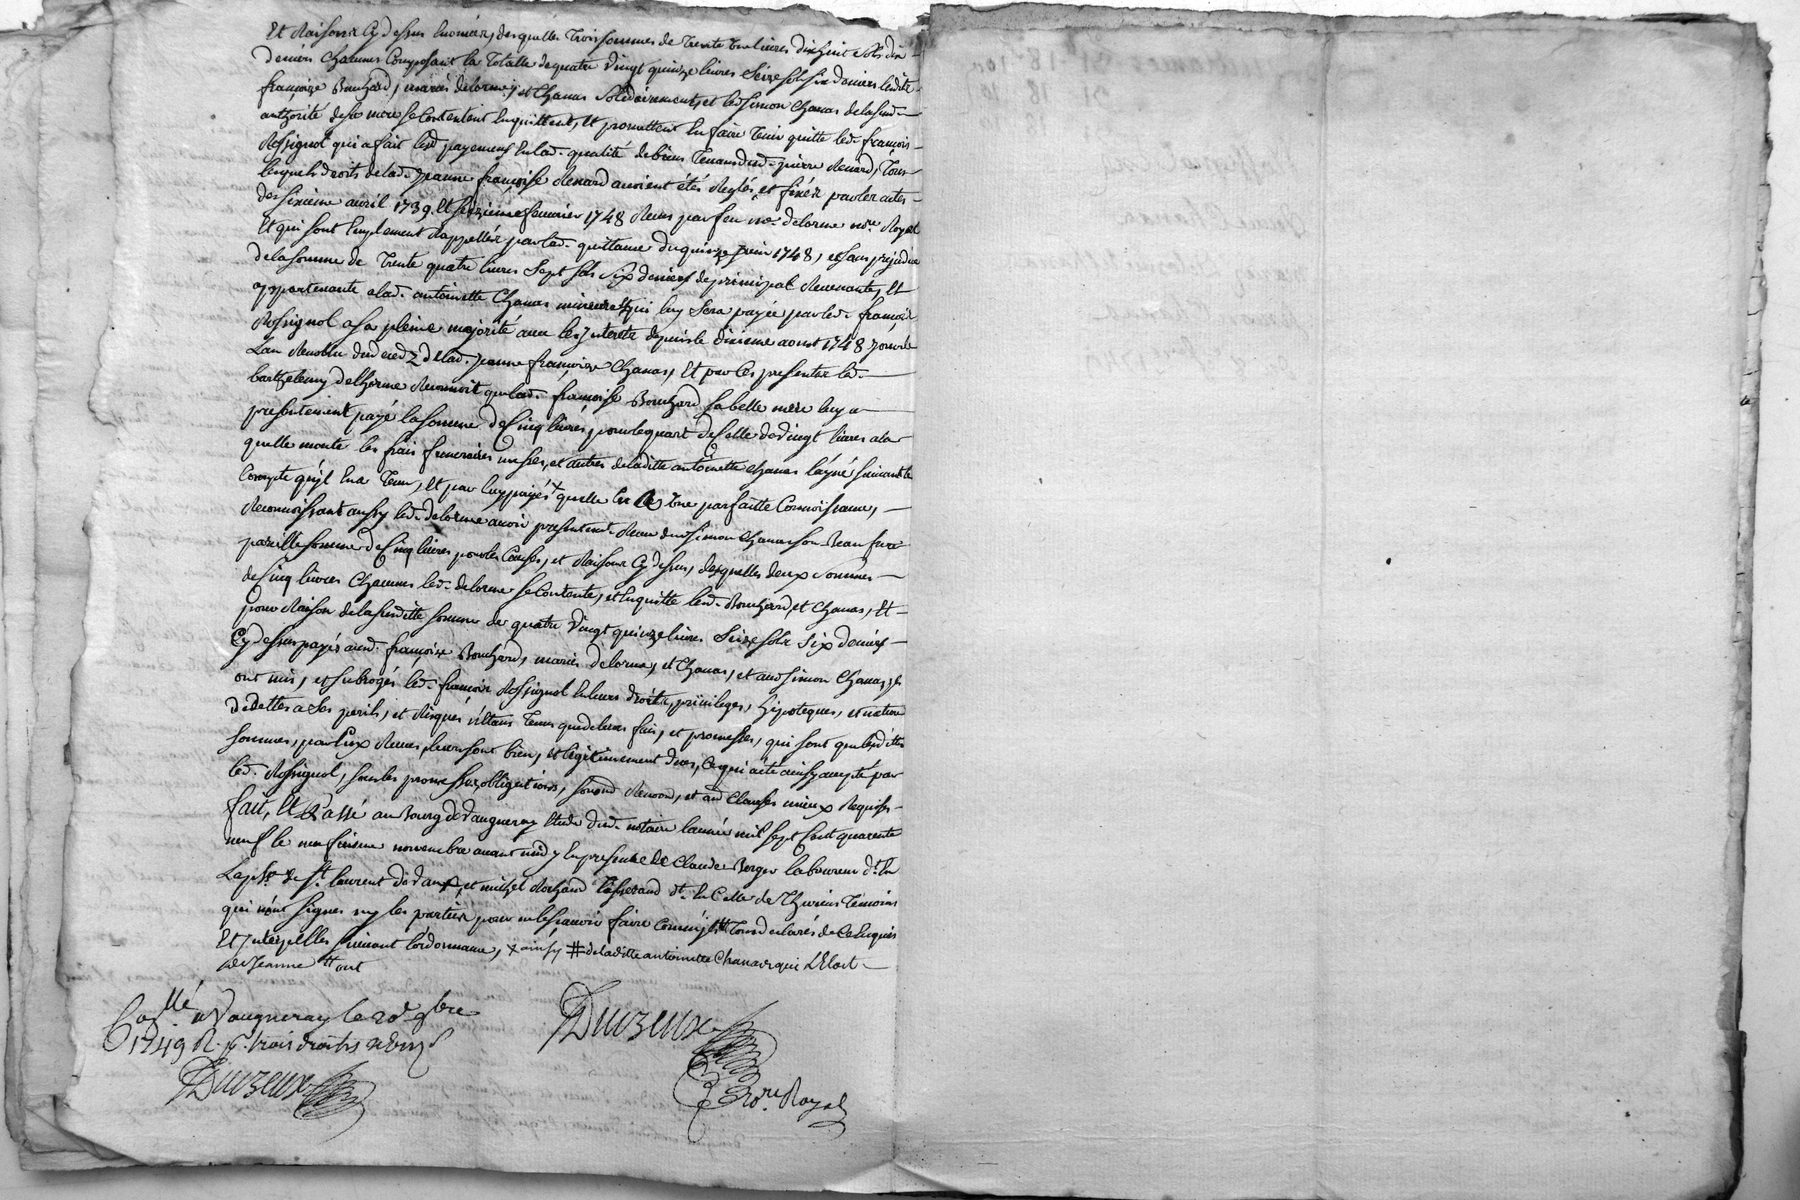 Et Raisons Cy dessus enoncées, desquelles trois sommes de trente une livres dixhuit sols dix
deniers chacunes Composant la totalle de quatre vingt quinze livres Seize sols six deniers lesdits
françoise Bouchard, mariés delorme, et Chanas Solidairement, et led Simon Chanas de lasusd
authorité de sa mere se Contentent En quittent, Et promettent En faire tenir quitte led. françois
Rossignol qui a fait lesd payements En lad. qualité de biens tenans dud. pierre Renard, tous
lesquels droits de lad. Jeanne françoise Renard avoient étés Reglés et fixés par les actes
des sixieme avril 1739. Et seizieme fevrier 1748 Reçus par feu me. delorme nore. Royal
Et qui sont Emplement Rappellés par lad. quittance du quinze juin 1748, et sans prejudice
de la somme de trente quatre livres Sept sols six deniers de principal Revenante, Et
appartenante a lad. antoinette Chanas mineure Et qui luy Sera payée par led. françois
Rossignol a sa pleine majorité avec les Interets depuis le dixieme aoust 1748 jour de
Lan Revolu du decedz de lad. Jeanne françoise Chanas, Et par Ces presentes led.
barthelemy delhorme Reconnoit que lad. françoise Bouchard sa belle mere luy a
presentement payé la somme de Cinq livres pour le quart de Celle de vingt livres a la
quelle monte les frais funeraires messes, et autres de laditte antoinette Chanas laynée suivant le
Compte qu'yl En a tenu, Et par luy payés + quelle En a Une parfaitte Connoissance,
Reconnoissant aussy led. delorme avoir presentemt. Receu dud Simon Chanas son Beau frere
pareille somme de Cinq livres pour les Causes, et Raisons Cy dessus, desquelles deux sommes
de Cinq livres Chacunes led. delorme se Contente, et En quitte lesd. Bouchard, et Chanas, Et
pour Raison de la susditte somme de quatre vingt quinze livres Seize sols Six deniers
Cy dessus payés aud. françoise Bouchard, mariés delorme, et Chanas, et aud Simon Chanas, ils
ont mis, et subrogés led. françois Rossignol En leurs droits, privileges, hipoteques, et nature
de dettes a Ses perils, et Risques n'Etans tenus que de leurs fais, et promesses, qui sont que lesdittes
sommes, par Eux Recues, leurs sont bien, et legitimement dues, Ce qui a été ainsy accepté par
led. Rossignol, sous les promesses obligations, soumd Renond, et aud Clauses mieux Requises
fait, Et Passé au Bourg de vaugneray Etude dud. notaire l'année mil sept Cent quarante
neuf le neufvieme novembre avant midy En presence de Claude Berger laboureur dt. En
La psse. de St. laurent de vaux, et michel Rochand tisserand dt. En Celle de thurins temoins
qui n'ont signés ny les parties pour ne le sçavoir faire Comm'jls ont tous declarés de Ce Enquis
Et Interpellés suivant lordonnance, x ainsy # de laditte antoinette Chanas qui l'Etoit
de Jeanne # ont
Collé. a Vaugneray le 20e 9bre
1749 R. 16s. trois droits rebuz
Duvzeux
Duvzeux
nore. Royal